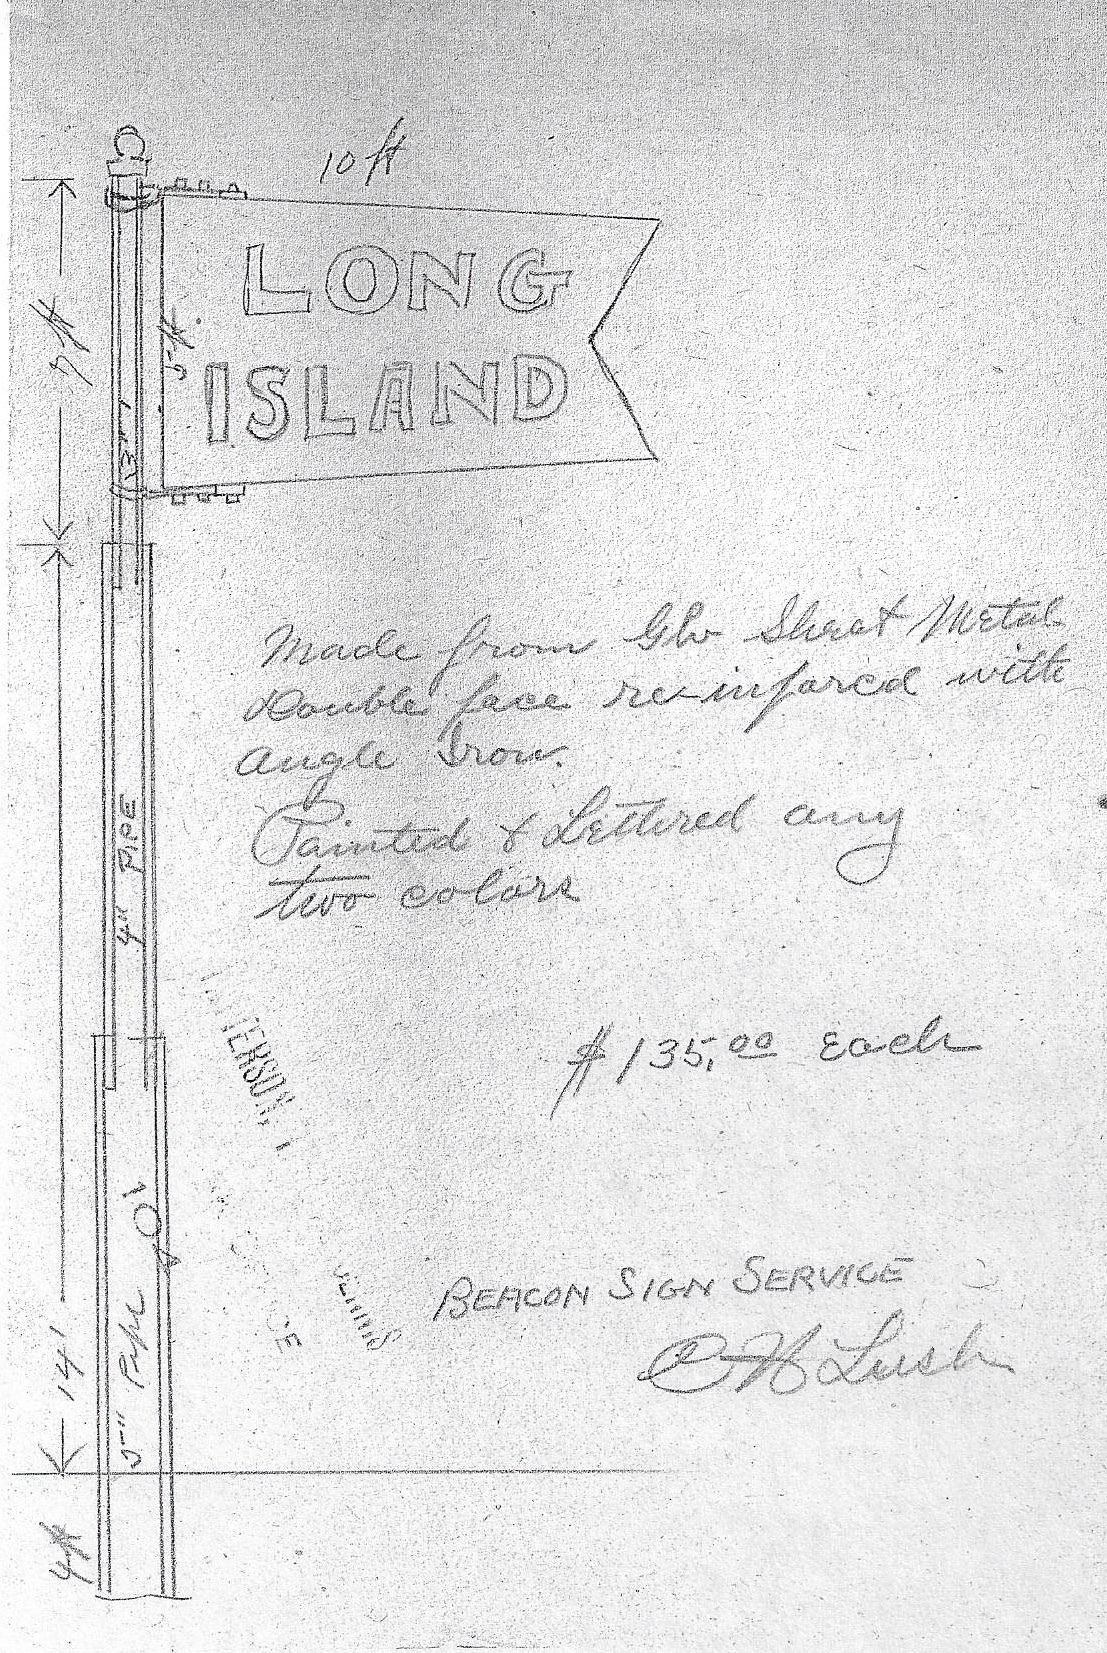 10 ft
LONG
ISLAND
7 ft
5 ft.
3"
Made from Glv Sheet Metal
Double face re-inforced with
Angle Iron.
Painted & Lettered any
two colors
4" PIPE
TERSON,
$135.00 Each
BEACON SIGN SERVICE
Lush
5" Pipe
14'
4 ft